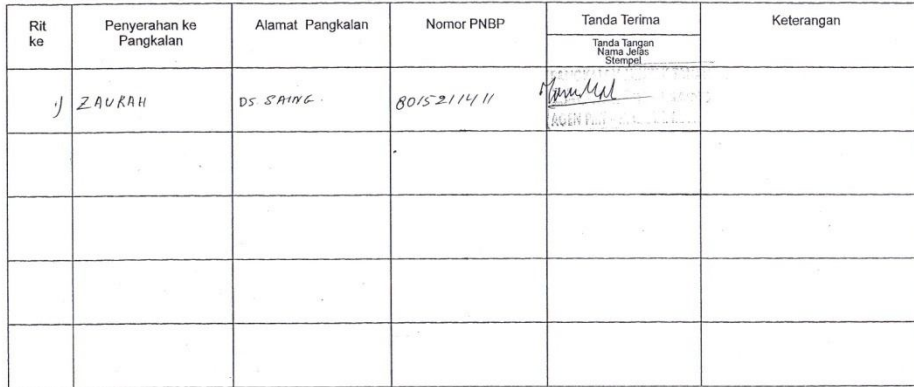 Rit ke
Penyerahan ke Pangkalan
Alamat Pangkalan
Nomor PNBP
Tanda Terima
Tanda Tangan
Nama Jelas
Stempel
Keterangan
1) ZAURAH
DS SAING.
8015211411